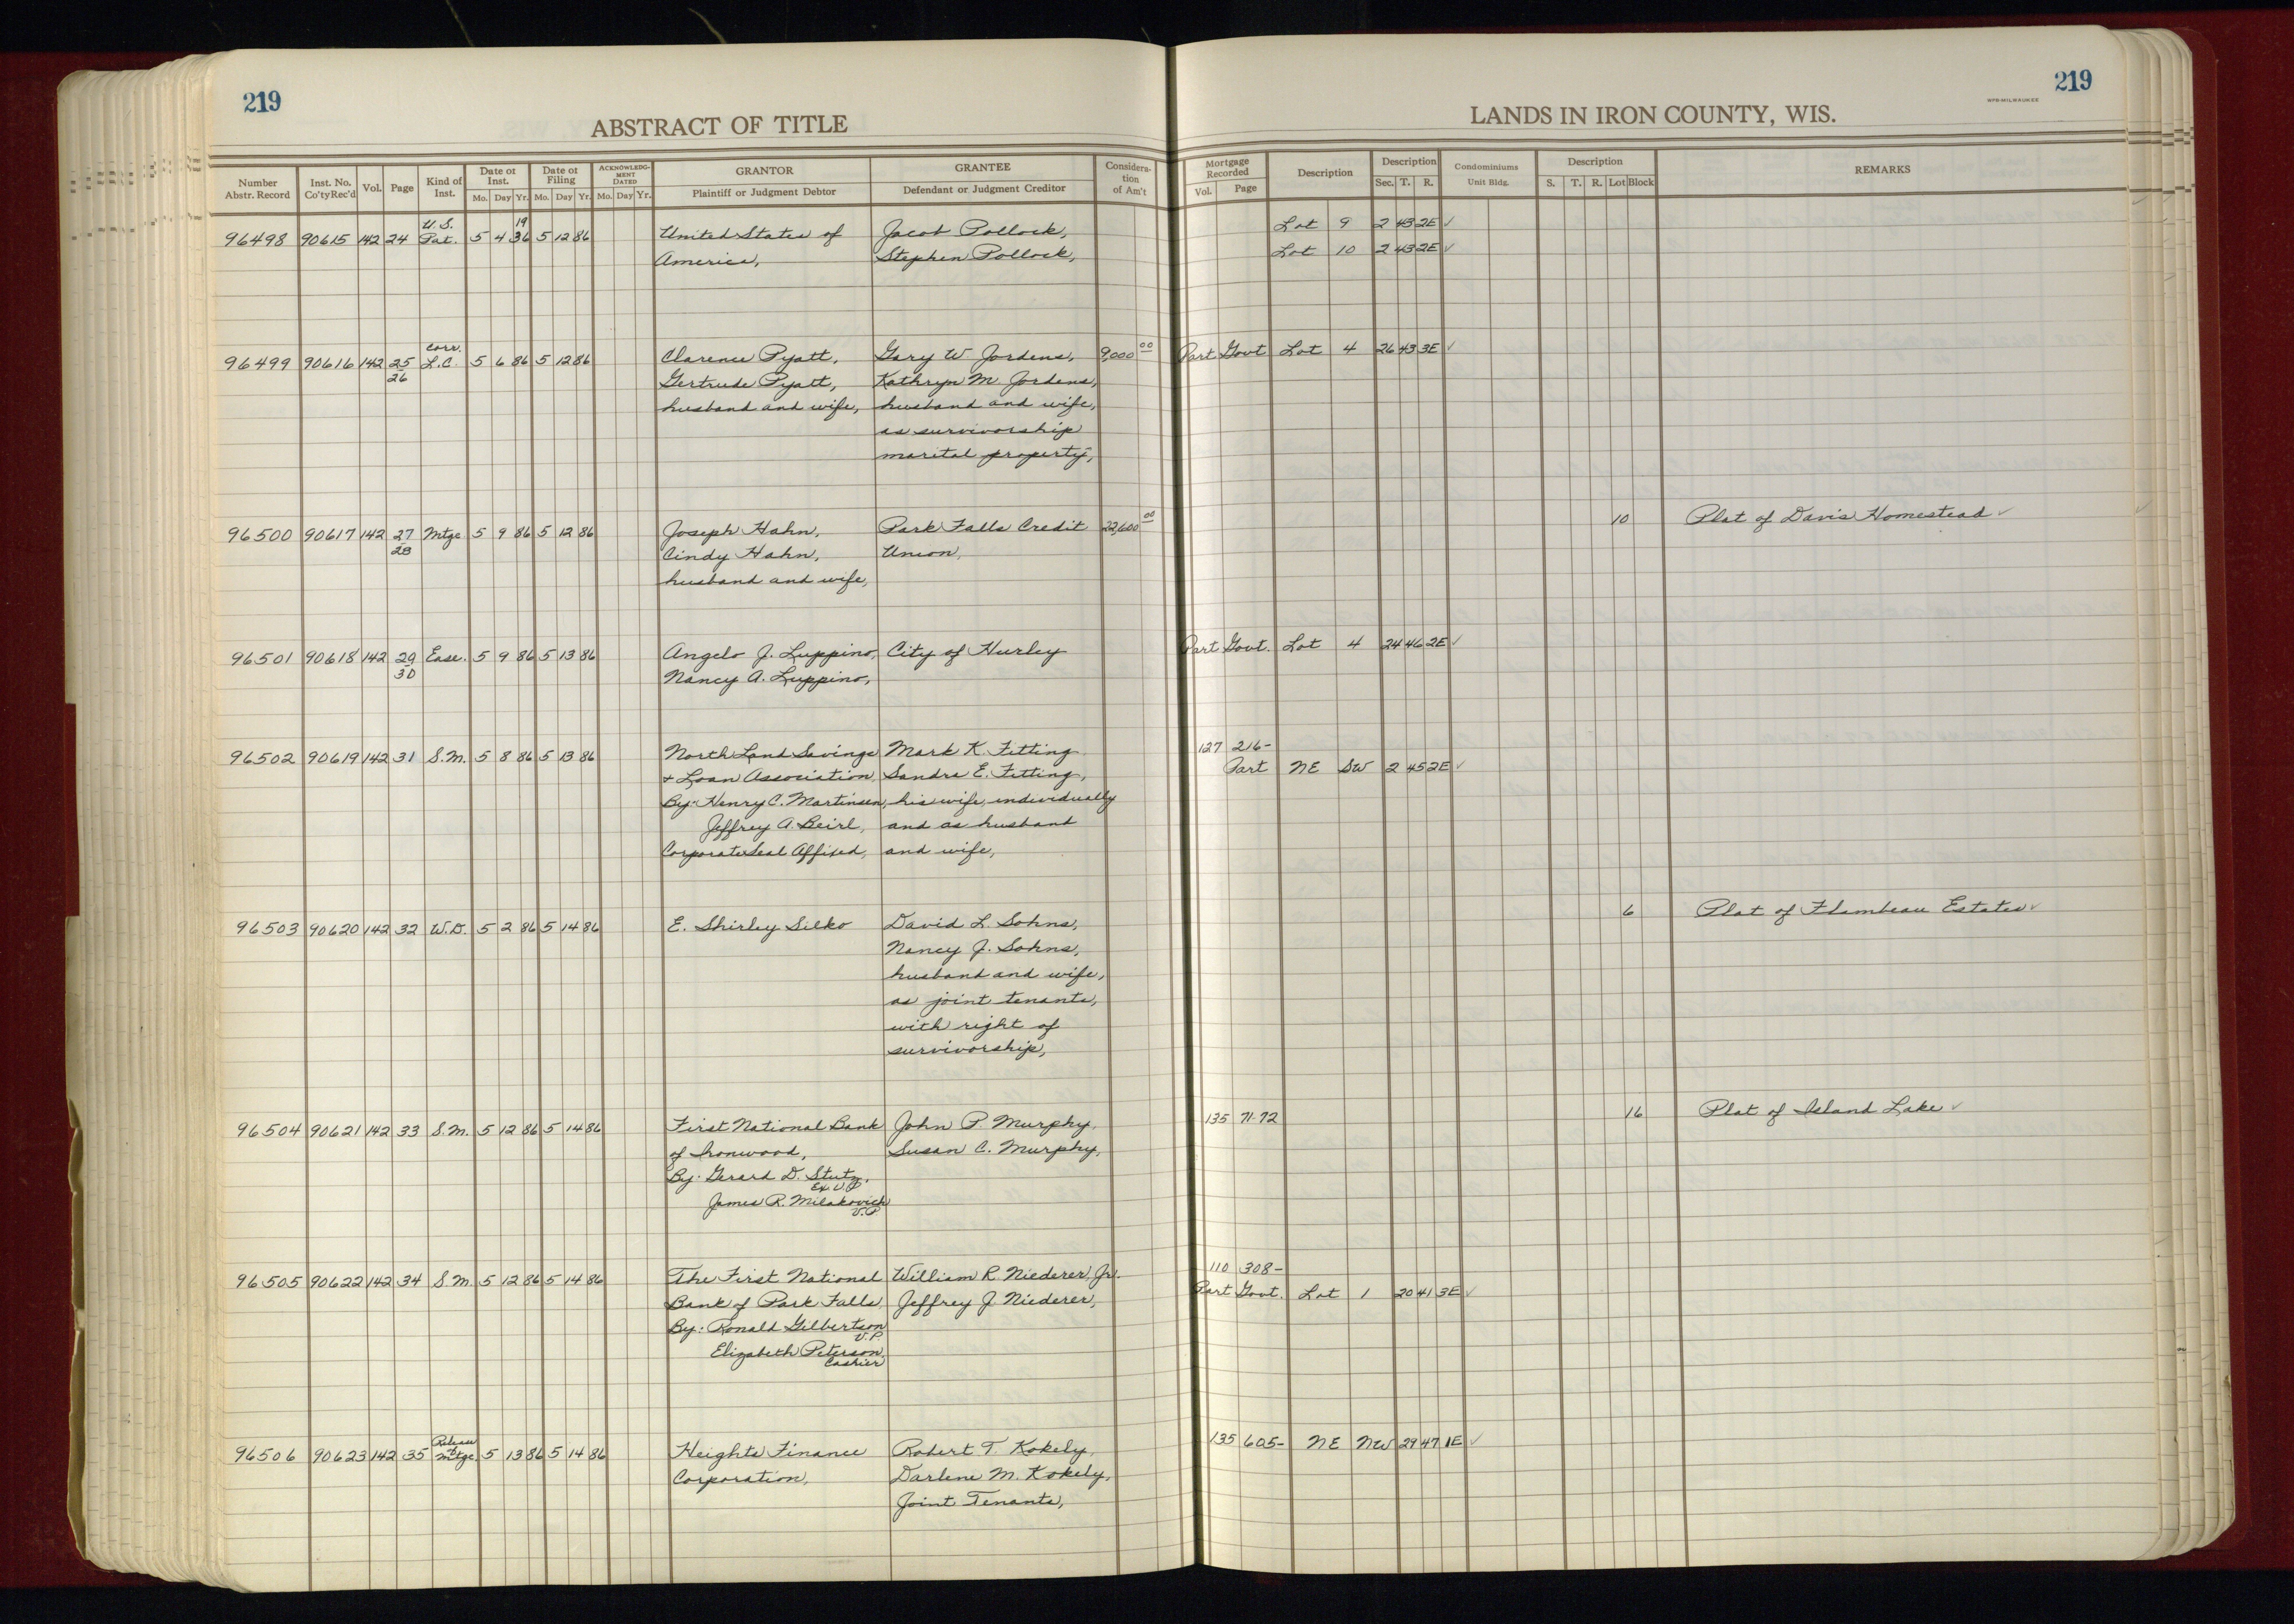 219
ABSTRACT OF TITLE
Number Abstr. Record | Inst. No. Co'ty Rec'd | Vol. | Page | Kind of Inst. | Date of Inst. Mo. Day Yr. | Date of Filing Mo. Day Yr. | ACKNOWLEDGMENT DATED Mo. Day Yr. | GRANTOR Plaintiff or Judgment Debtor | GRANTEE Defendant or Judgment Creditor | Consideration of Am't
219
WPB-MILWAUKEE
LANDS IN IRON COUNTY, WIS.
Mortgage Recorded Vol. Page | Description | Description Sec. T. R. | Condominiums Unit Bldg. | Description S. T. R. Lot Block | REMARKS
U.S. 19
96498 90615 142 24 Pat. 5 4 36 5 12 86 United States of Jacob Pollock, Lot 9 2 43 2E ✓
America, Stephen Pollock, Lot 10 2 43 2E ✓
Corr.
96499 90616 142 25 L.C. 5 6 86 5 12 86 Clarence Pyatt, Gary W Jordens, 9,000 00 Part Govt Lot 4 26 43 3E ✓
26 Gertrude Pyatt, Kathryn M. Jordens,
husband and wife, husband and wife,
as survivorship
marital property,
96500 90617 142 27 Mtge 5 9 86 5 12 86 Joseph Hahn, Park Falls Credit 22,600 00 10 Plat of Davis Homestead ✓
28 Cindy Hahn, Union,
husband and wife,
96501 90618 142 29 Ease. 5 9 86 5 13 86 Angelo J. Luppino, City of Hurley Part Govt. Lot 4 24 46 2E ✓
30 Nancy A. Luppino,
96502 90619 142 31 S.M. 5 8 86 5 13 86 North Land Savings Mark K. Fitting 127 216-
& Loan Association Sandra E. Fitting, Part NE SW 2 45 2E ✓
By: Henry C. Martinsen, his wife, individually
Jeffrey A. Beirl, and as husband
Corporate Seal Affixed, and wife,
96503 90620 142 32 W.D. 5 2 86 5 14 86 E. Shirley Silko David L. Sohns, 6 Plat of Flambeau Estates ✓
Nancy J. Sohns,
husband and wife,
as joint tenants,
with right of
survivorship,
96504 90621 142 33 S.M. 5 12 86 5 14 86 First National Bank John P. Murphy, 135 71-72 16 Plat of Island Lake ✓
of Ironwood, Susan C. Murphy,
By: Gerard D. Stutz,
Ex. V P
James R. Milakovich
V.P
96505 90622 142 34 S.M. 5 12 86 5 14 86 The First National William R. Niederer, Jr. 110 308-
Bank of Park Falls, Jeffrey J. Niederer, Part Govt. Lot 1 20 41 3E ✓
By: Ronald Gilbertson
V.P.
Elizabeth Peterson,
Cashier
Release of
96506 90623 142 35 Mtge. 5 13 86 5 14 86 Heights Finance Robert T. Kokely, 135 605- NE NW 29 47 1E ✓
Corporation, Darlene M. Kokely,
Joint Tenants,